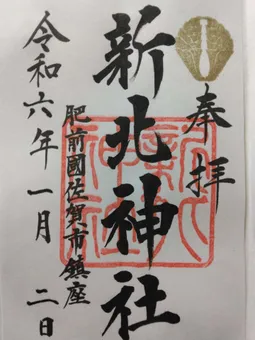 奉拝
新北神社
肥前國佐賀市鎮座
令和六年一月二日